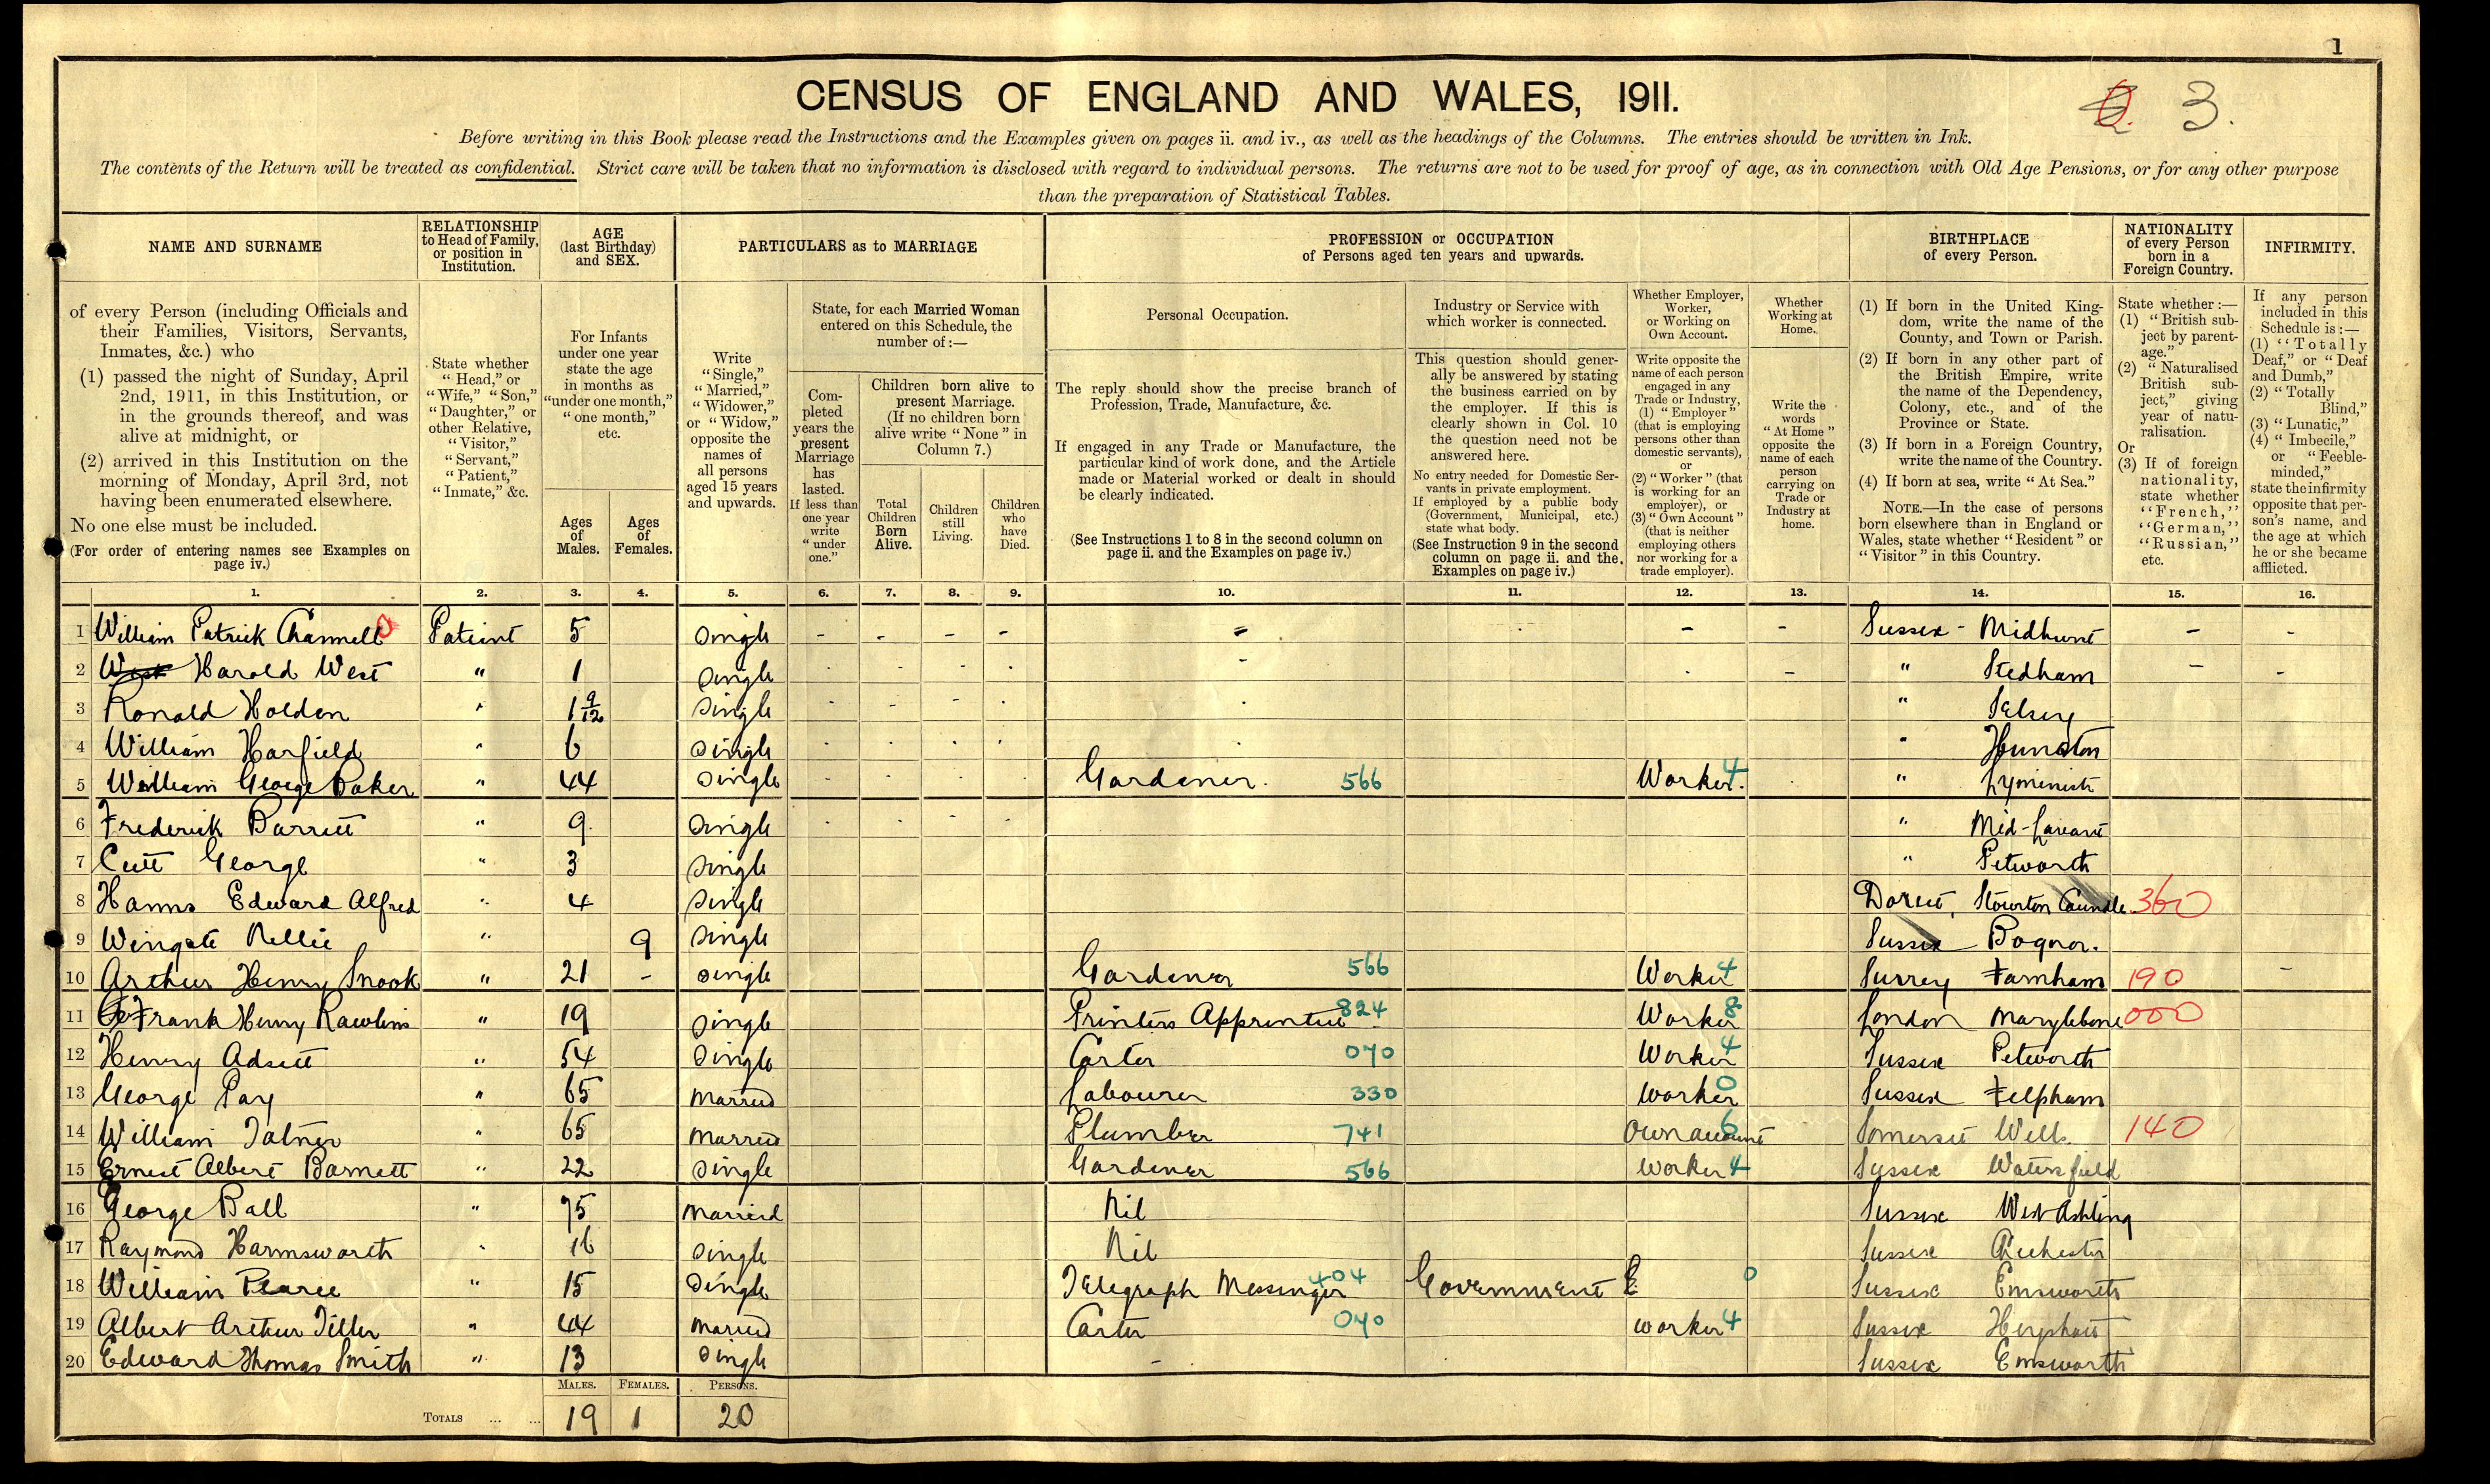 1
CENSUS OF ENGLAND AND WALES, 1911.
3.
Before writing in this Book please read the Instructions and the Examples given on pages ii. and iv., as well as the headings of the Columns. The entries should be written in Ink.
The contents of the Return will be treated as confidential. Strict care will be taken that no information is disclosed with regard to individual persons. The returns are not to be used for proof of age, as in connection with Old Age Pensions, or for any other purpose
than the preparation of Statistical Tables.
NAME AND SURNAME
of every Person (including Officials and
their Families, Visitors, Servants,
Inmates, &c.) who
(1) passed the night of Sunday, April
2nd, 1911, in this Institution, or
in the grounds thereof, and was
alive at midnight, or
(2) arrived in this Institution on the
morning of Monday, April 3rd, not
having been enumerated elsewhere.
No one else must be included.
(For order of entering names see Examples on
page iv.)
RELATIONSHIP
to Head of Family,
or position in
Institution.
State whether
"Head," or
"Wife," "Son,"
"Daughter," or
other Relative,
"Visitor,"
"Servant,"
"Patient,"
"Inmate," &c.
AGE
(last Birthday)
and SEX.
For Infants
under one year
state the age
in months as
"under one month,"
"one month,"
etc.
Ages
of
Males.
Ages
of
Females.
PARTICULARS as to MARRIAGE
Write
"Single,"
"Married,"
"Widower,"
or "Widow,"
opposite the
names of
all persons
aged 15 years
and upwards.
State, for each Married Woman
entered on this Schedule, the
number of:—
Com-
pleted
years the
present
Marriage
has
lasted.
If less than
one year
write
"under
one."
Children born alive to
present Marriage.
(If no children born
alive write "None" in
Column 7.)
Total
Children
Born
Alive.
Children
still
Living.
Children
who
have
Died.
PROFESSION or OCCUPATION
of Persons aged ten years and upwards.
Personal Occupation.
The reply should show the precise branch of
Profession, Trade, Manufacture, &c.
If engaged in any Trade or Manufacture, the
particular kind of work done, and the Article
made or Material worked or dealt in should
be clearly indicated.
(See Instructions 1 to 8 in the second column on
page ii. and the Examples on page iv.)
Industry or Service with
which worker is connected.
This question should gener-
ally be answered by stating
the business carried on by
the employer. If this is
clearly shown in Col. 10
the question need not be
answered here.
No entry needed for Domestic Ser-
vants in private employment.
If employed by a public body
(Government, Municipal, etc.)
state what body.
(See Instruction 9 in the second
column on page ii. and the
Examples on page iv.)
Whether Employer,
Worker,
or Working on
Own Account.
Write opposite the
name of each person
engaged in any
Trade or Industry,
(1) "Employer"
(that is employing
persons other than
domestic servants),
or
(2) "Worker" (that
is working for an
employer), or
(3) "Own Account"
(that is neither
employing others
nor working for a
trade employer).
Whether
Working at
Home.
Write the
words
"At Home"
opposite the
name of each
person
carrying on
Trade or
Industry at
home.
BIRTHPLACE
of every Person.
(1) If born in the United King-
dom, write the name of the
County, and Town or Parish.
(2) If born in any other part of
the British Empire, write
the name of the Dependency,
Colony, etc., and of the
Province or State.
(3) If born in a Foreign Country,
write the name of the Country.
(4) If born at sea, write "At Sea."
NOTE.—In the case of persons
born elsewhere than in England or
Wales, state whether "Resident" or
"Visitor" in this Country.
NATIONALITY
of every Person
born in a
Foreign Country.
State whether:—
(1) "British sub-
ject by parent-
age."
(2) "Naturalised
British sub-
ject," giving
year of natu-
ralisation.
Or
(3) If of foreign
nationality,
state whether
"French,"
"German,"
"Russian,"
etc.
INFIRMITY.
If any person
included in this
Schedule is:—
(1) "Totally
Deaf," or "Deaf
and Dumb,"
(2) "Totally
Blind,"
(3) "Lunatic,"
(4) "Imbecile,"
or "Feeble-
minded,"
state the infirmity
opposite that per-
son's name, and
the age at which
he or she became
afflicted.
1. 2. 3. 4. 5. 6. 7. 8. 9. 10. 11. 12. 13. 14. 15. 16.
1 William Patrick Channell Patient 5 Single - - - - - - - Sussex - Midhurst - -
2 West Harold West " 1 Single - - - " Stedham - -
3 Ronald Holden " 1 9/12 Single " Selsey
4 William Harfield " 6 Single " Hunston
5 William George Baker " 44 Single Gardener. 566 Worker. 4 " Lyminster
6 Frederick Barrett " 9 Single " Mid-Lavant
7 Cutt George " 3 Single " Petworth
8 Hanns Edward Alfred " 4 Single Dorset, Stourton Caundle 360
9 Wingate Nellie " 9 Single Sussex Bognor.
10 Arthur Henry Snook " 21 - Single Gardener 566 Worker 4 Surrey Farnham 190 -
11 Frank Henry Rawlins " 19 Single Printers Apprentice 824 Worker 8 London Marylebone 000
12 Henry Adsett " 54 Single Carter 070 Worker 4 Sussex Petworth
13 George Pay " 65 Married Labourer 330 Worker 0 Sussex Felpham
14 William " 65 Married Plumber 741 Own account 6 Somerset Wells. 140
15 Ernest Albert Barnett " 22 Single Gardener 566 Worker 4 Sussex Watersfield
16 George Ball " 75 Married Nil Sussex West Ashling
17 Raymond Harmsworth " 16 Single Nil Sussex Chichester
18 William Pearce " 15 Single Telegraph Messenger 404 Government 0 Sussex Emsworth
19 Albert Arthur Tiller " 44 Married Carter 070 Worker 4 Sussex
20 Edward Thomas Smith " 13 Single - Sussex Emsworth
MALES. FEMALES. PERSONS.
TOTALS ... ... 19 1 20